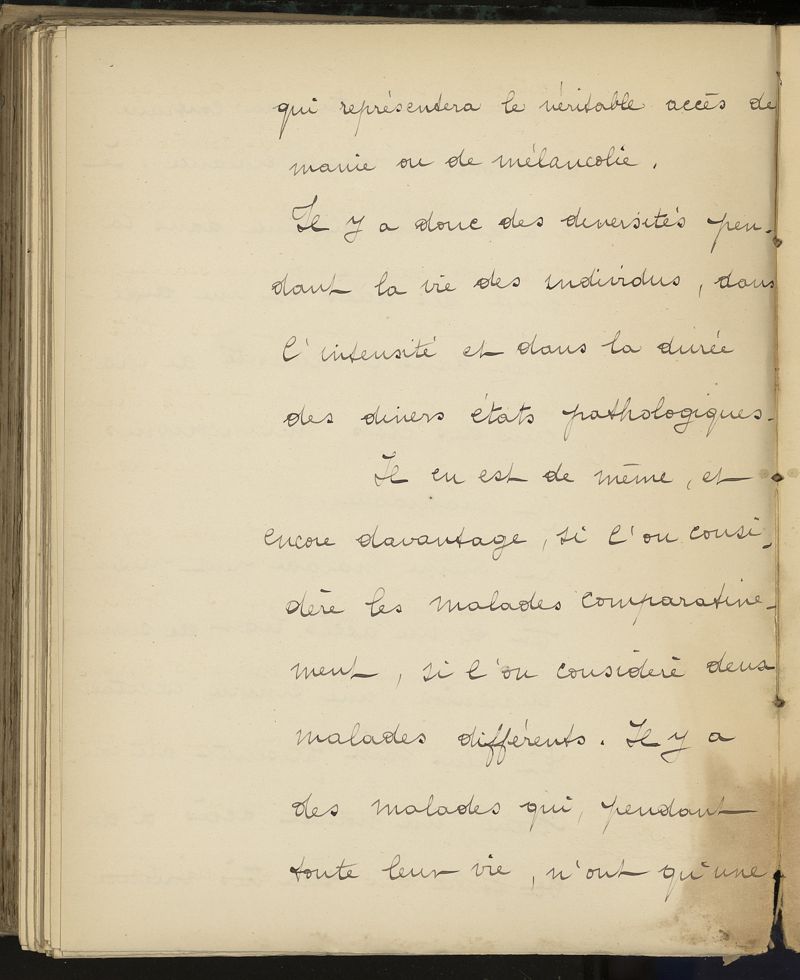 qui représentera le véritable accès de
manie ou de mélancolie.
Il y a donc des diversités pen-
dant la vie des individus, dans
l'intensité et dans la durée
des divers états pathologiques.
Il en est de même, et
encore davantage, si l'on consi-
dère les malades comparative-
ment, si l'on considère deux
malades différents. Il y a
des malades qui, pendant
toute leur vie, n'ont qu'une